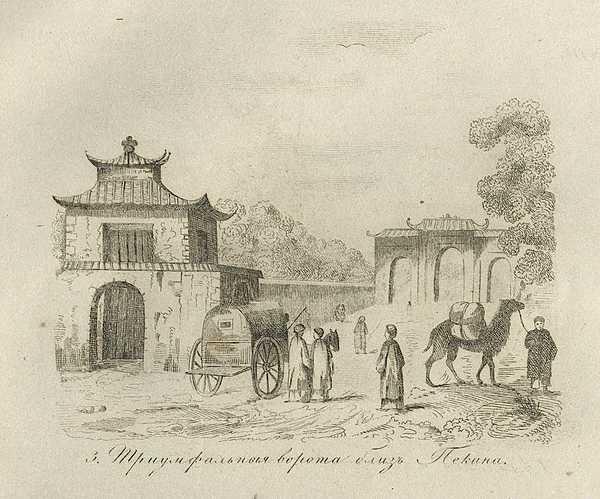 3. Триумфальныя ворота близъ Пекина.